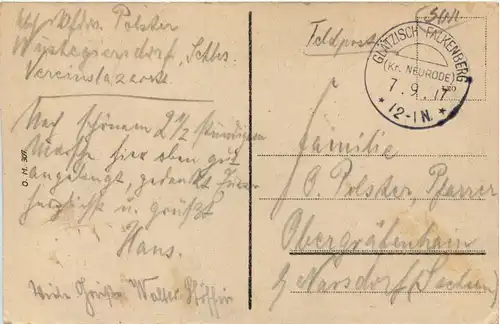 Polster
Wüstegiersdorf, Schles.
Vereinslazarett
Nach schönem 2 1/2 stündigen
Marsche hier oben gut
angelangt, gedenkt Euer
herzlichst u. grüßt
Hans.
Viele Grüße Walter
D. H. 307.
Feldpost
GLÄTZISCH FALKENBERG
(Kr. NEURODE)
7.9.17
* 12-1N. *
Familie
O. Polster, Pfarrer
Obergräfenhain
b/ Narsdorf (Sachsen)